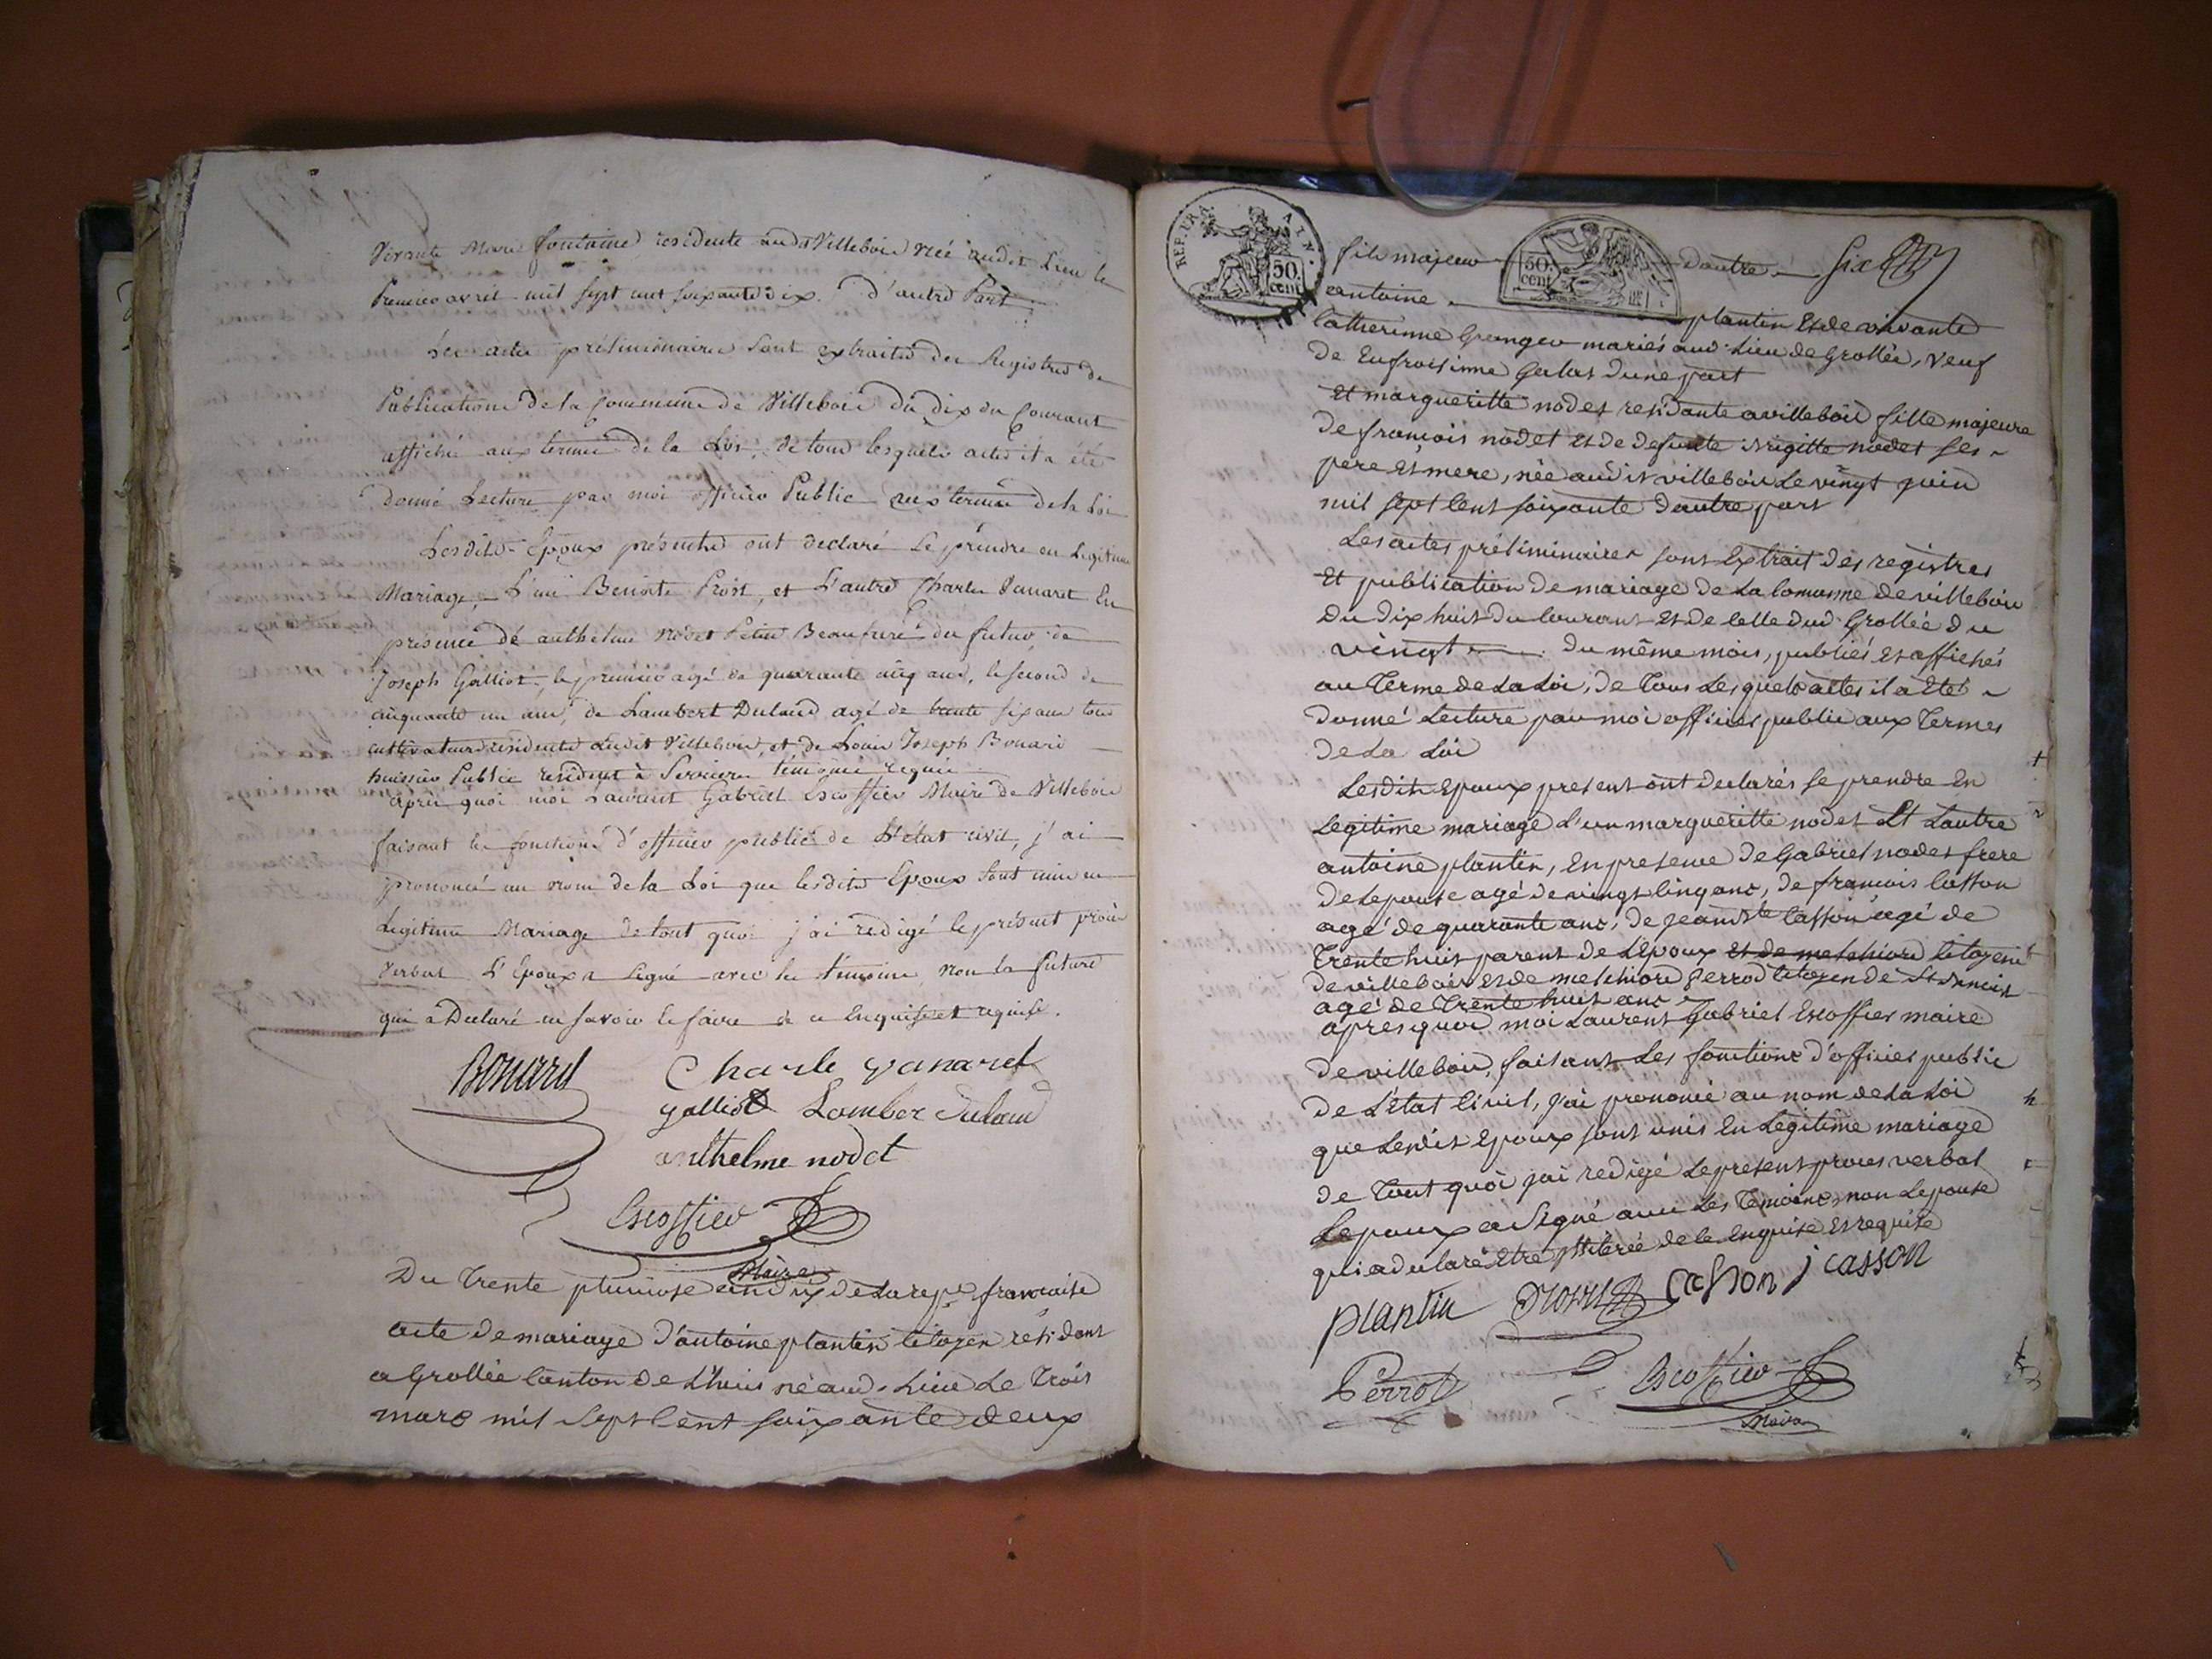 vivante Marie fontaine residente audit Villebois née audit Lieu le
Premier avril mil sept cent soixante dix. d'autre Part
Les actes préliminaires sont extraits des Registres de
Publications de la Commune de Villebois du dix du Courant
affichés aux termes de la Loi, de tous lesquels actes il a été
donné Lecture par moi officier Public aux termes de la Loi
Lesdits Epoux présents ont declaré se prendre en Legitime
Mariage, L'une Benoite Prost, et L'autre Charles Vanaret En
présence de anthelme Nodet Beaufrere du futur, de
Joseph Galliot, le premier agé de quarante cinq ans, le second de
cinquante un ans, de Lambert Dulaud agé de trente six ans tous
cultivateurs residents audit Villebois, et de Louis Joseph Bonard
huissier Public resident à Serrieres témoins requis
après quoi moi Laurent Gabriel Escoffier Maire de Villebois
faisant les fonctions d'officier public de L'état civil, j'ai
prononcé au nom de la Loi que lesdits Epoux sont unis en
Legitime Mariage de tout quoi j'ai redigé le présent procès
verbal L'Epoux a signé avec les témoins non la future
qui a Declaré ne savoir le faire de ce Enquise et requise.
Bonard Charle vanaret
galliot Lamber dulaud
anthelme nodet
Escoffier
Maire
Du Trente pluviose an dix de La rep.e francaise
acte de mariage d'antoine plantin citoyen résidant
a Grollée Canton de L'huis né aud. Lieu Le Trois
mars mil sept Cent soixante deux
REP. FRA. AIN.
50. cent
50. cent
fils majeur dautre six
antoine plantin et de vivante
Catherinne Granger mariés aud. Lieu de Grollée, veuf
de Eufroisinne Galas dune part
Et margueritte nodet residante a villebois fille majeure
de francois nodet et de defunte Brigitte nodet ses
pere et mere, née audit villebois Le vingt juin
mil sept Cent soixante dautre part
Les actes préliminaires sont Extrait des registres
Et publication de mariage de La Comunne de villebois
du dix huit du Courant Et de Celle dud. Grollée du
vingt du même mois, publiés et affichés
au Terme de La Loi, de Tous Lesquels actes il a Eté
donné Lecture par moi officier public aux Termes
de La Loi
Lesdits Epoux present ont declarés se prendre En
Legitime mariage L'un margueritte nodet Et Lautre
antoine plantin, En presence de Gabriel nodet frere
de Lepouse agé de vingt cinq ans, de francois Casson
agé de quarante ans, de jean Bte Casson agé de
Trente huit parent de L'epoux et de melchiore Citoyens
de villebois et de melchiore perrod Citoyen de St
agé de Trente huit ans
apres quoi moi Laurent Gabriel Escoffier maire
de villebois, faisant Les fonctions d'officier public
de L'Etat Civil, j'ai prononcé au nom de La Loi
que Lesdit Epoux sont unis En Legitime mariage
de Tout quoi j'ai redigé Le present proces verbal
Lepoux a Signé avec Les Temoins, non Lepouse
qui a declaré Etre illiterée de Ce Enquise Et requise
plantin nodet Casson j casson
Perrod Escoffier
Maire